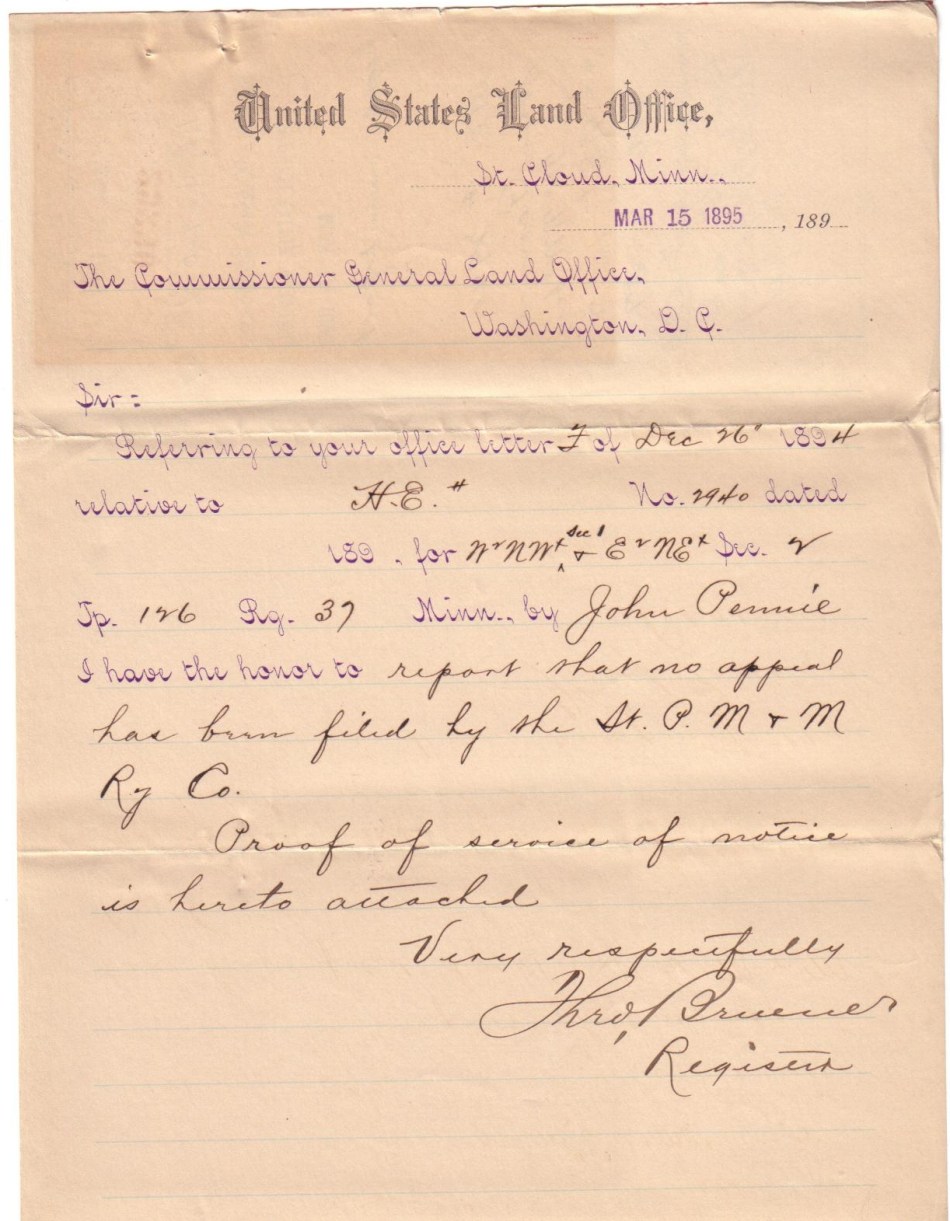 United States Land Office,
St. Cloud, Minn.,
MAR 15 1895 , 189
The Commissioner General Land Office,
Washington, D. C.
Sir:
Referring to your office letter F of Dec 26" 1894
relative to H.E. # No. 2940 dated
189 , for W2 NW4 Sec 1 & E2 NE4 Sec. 2
Tp. 126 Rg. 37 Minn., by John Pennie
I have the honor to report that no appeal
has been filed by the St. P. M & M
Ry Co.
Proof of service of notice
is hereto attached
Very respectfully
Theo, Bruener
Register